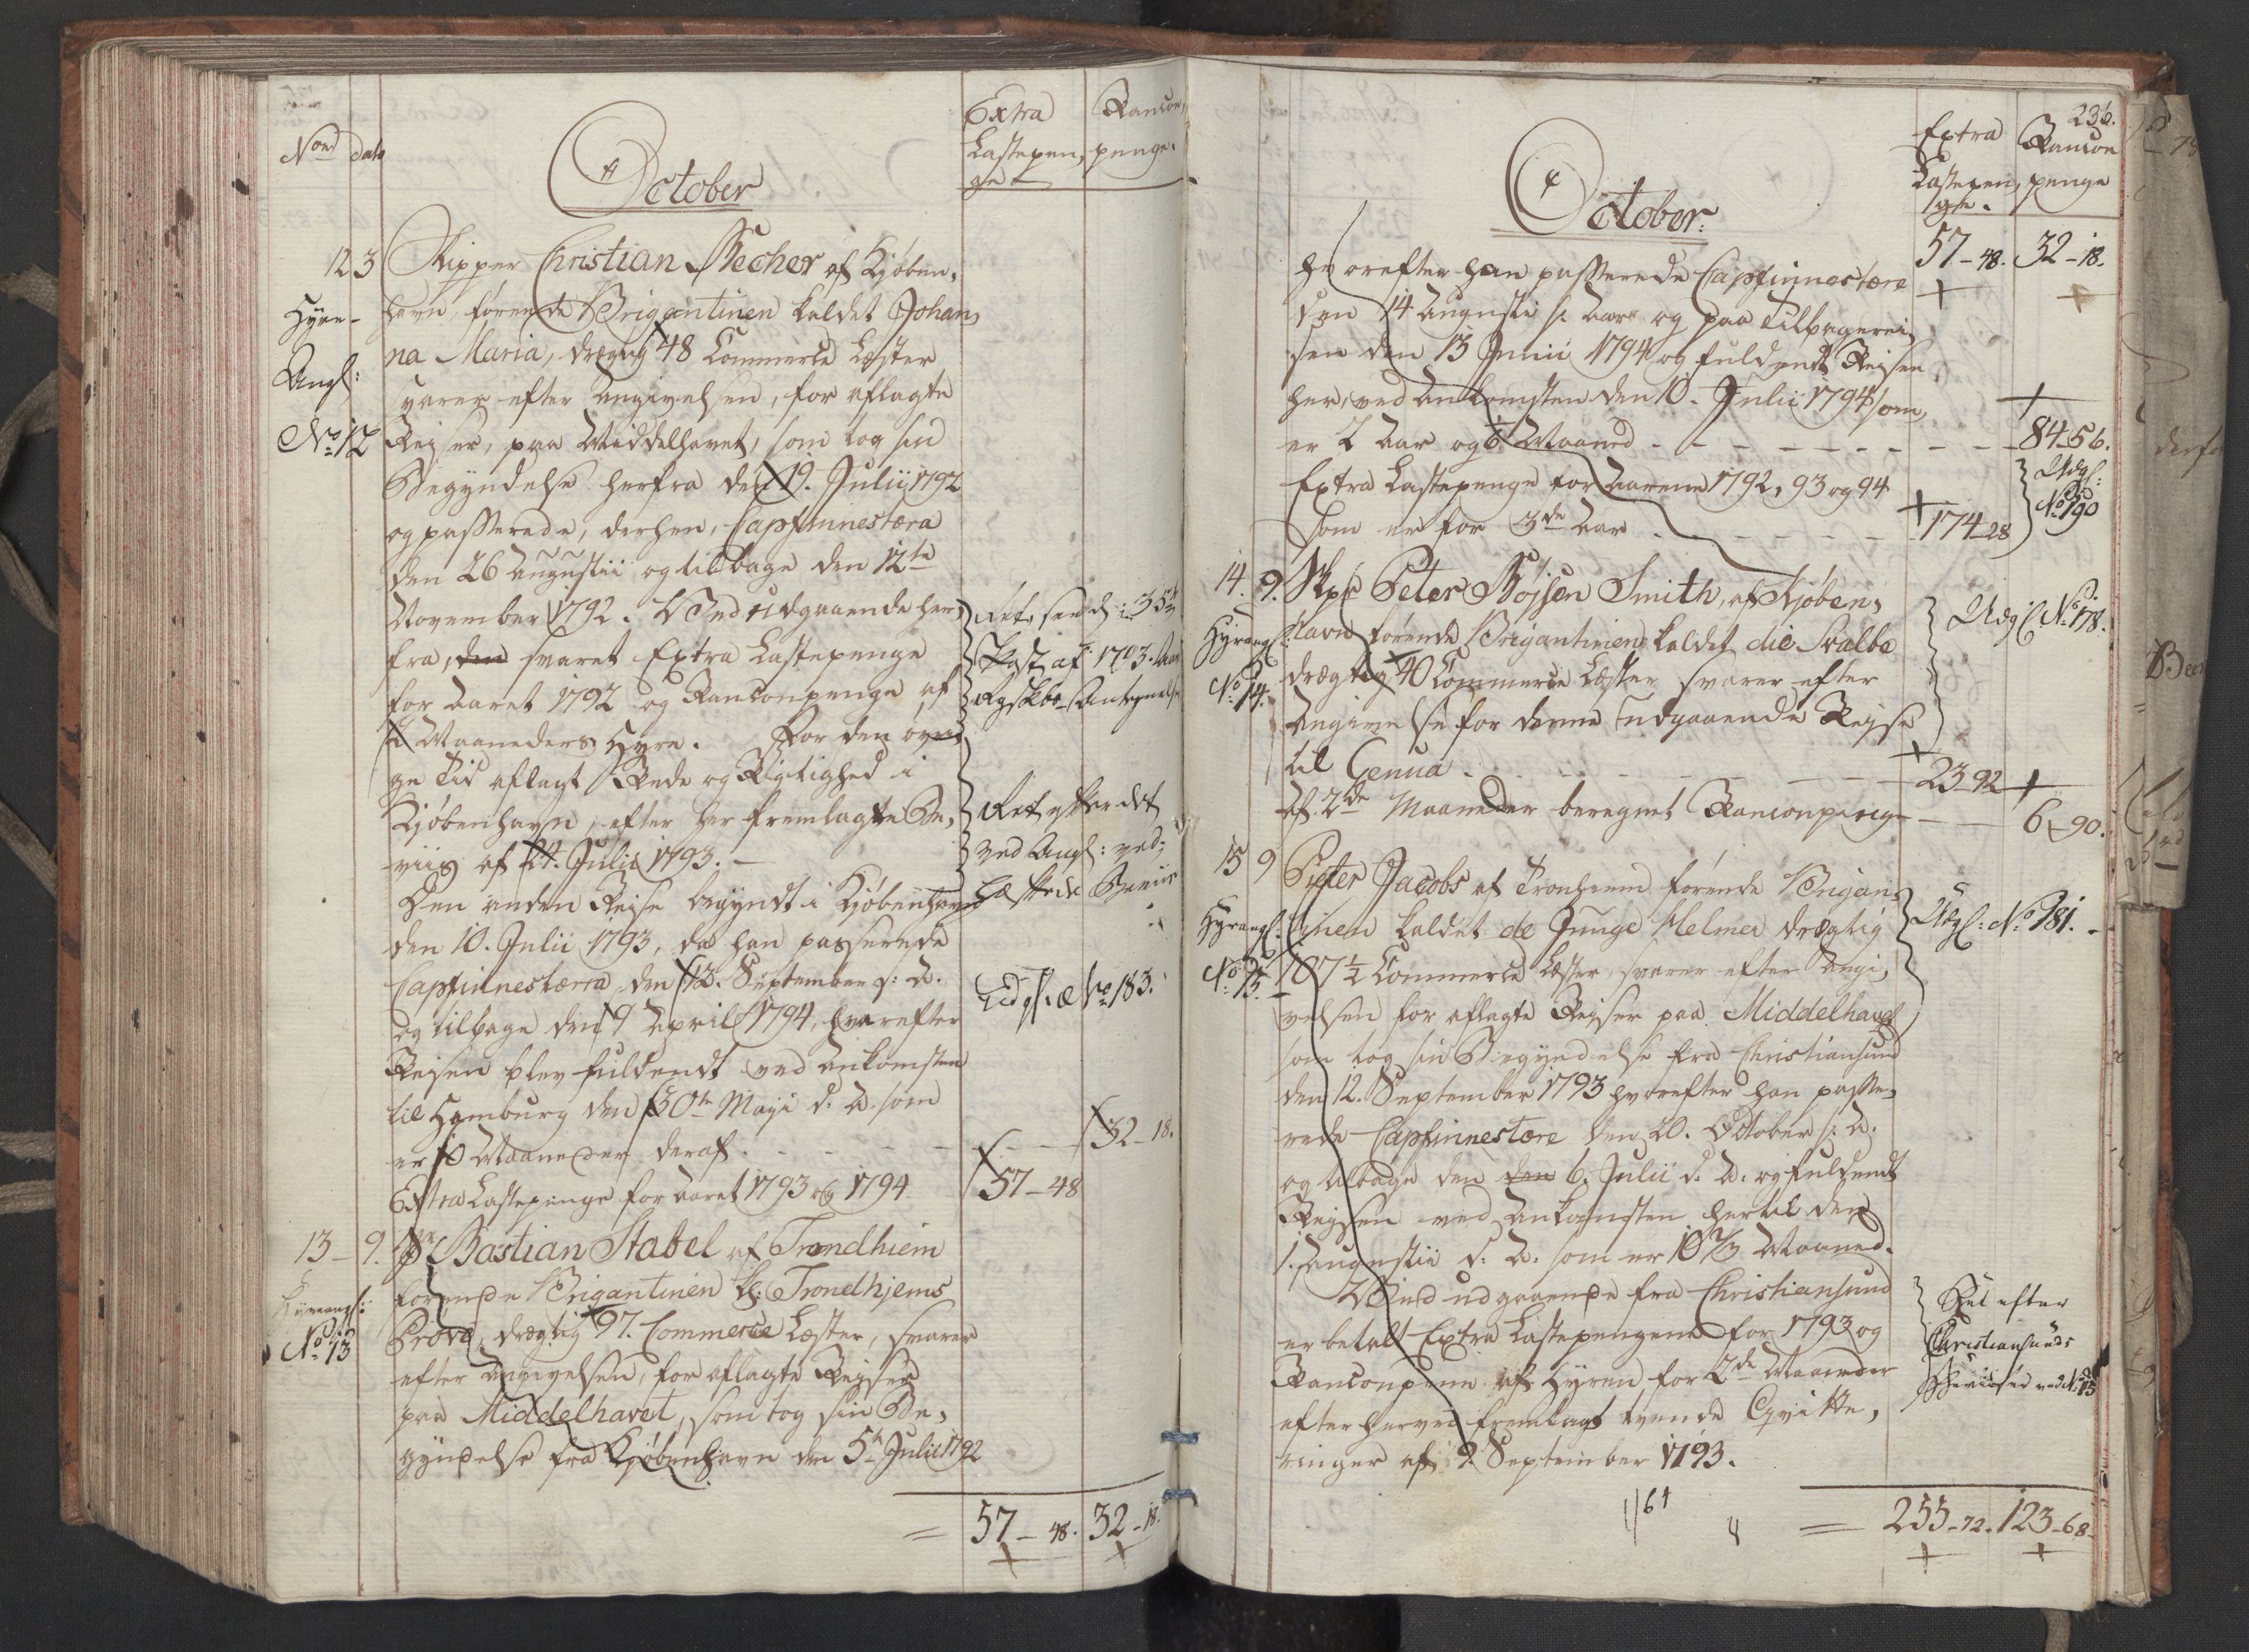 Noes dato
October
Extra Lastepen, ge
Rancon, penge.
12 3 Skipper Christian Becher af Kjøben,
havn, førende Brigantinen kaldet Johan,
na Maria, drægtig 48 Commerce Læster
svarer efter Angivelsen, for aflagte
Reiser, paa Middelhavet, som tog sin
Begyndelse herfra den 19. Julii 1792
og passerede, derhen, Capfinnestæra
den 26 Augustii og tilbage den 12te
November 1792. Ved udgaaende her,
fra, den svaret Extra Lastepenge
for Aaret 1792 og Ranconpenge af
2 Maaneders Hyre. For den øvri,
ge Tid aflagt Rede og Rigtighed i
Kjøbenhavn, efter her fremlagte Be,
viis af 24. Julii 1793. -
Den anden Reise begyndt i Kjøbenhavn
den 10. Julii 1793, da han passerede
Capfinnestærra den 13. September s: A.
og tilbage den 9 April 1794, hvorefter
Reisen blev fuldendt ved Ankomsten
til Hamburg den 30te Maji d. A. som
er 10 Maaneder deraf - - - 32-18.
Extra Lastepenge for Aaret 1793 og 1794 57-48
Hyre-
Angl:
No: 12
Post af 1793.
ved Angl: ved,
hæftede Beviis
No 183.
13 - 9. Skpr Bastian Stabel af Trondhiem
førende Brigantinen kl: Trondhjems
Prøve, drægtig 97. Commerce Læster, svarer
efter Angivelsen, for aflagte Reiser
paa Middelhavet, som tog sin Be,
gyndelse fra Kjøbenhavn den 5te Julii 1792
Hyreangl:
No: 13
= 57-48. 32-18.
236.
October.
Extra Lastepen, ge.
Rancon penge
57-48. 32-18.
hvorefter han passerede Capfinnestære
den 14 Augusti s. Aar og paa Tilbagerei,
sen den 13 Junii 1794 og fuldendt Reisen
her, ved Ankomsten den 10. Julii 1794 som
er 2 Aar og Maaned - - - 84-56.
Extra Lastepenge for Aarene 1792, 93 og 94
som er for 3de Aar - - - 174-28
Udgl:
No 190
14. 9. Skpr Peter Bøjsen Smith, af Kjøben,
havn førende Brigantinen kaldet die Svalbe
drægtig 40 Commerce Læster svarer efter
Angivelse for denne udgaaende Rejse
til Genua - - - 23-92
af 2de Maaneder beregnet Ranconpenge - - 6-90.
Hyreangl:
No 14.
Udgl No 178.
15 9 Pieter Jacobs af Tronhiem førende Brigan,
tinen kaldet de Junge Helmer drægtig
107 1/2 Commerce Læster, svarer efter Angi,
velsen for aflagte Reiser paa Middelhavet
som tog sin Begyndelse fra Christiansund
den 12. September 1793 hvorefter han passe,
rede Capfinnestære den 20. October s. A.
og tilbage den den 6. Julii d. A. og fuldendt
Reisen ved Ankomsten hertil den
1. Augustii d. A. som er 10 2/3 Maaned.
Ved udgaaende fra Christiansund
er betalt Extra Lastepengene for 1793 og
Ranconpene af Hyren for 2de Maaneder
efter herved fremlagt tvende Qvitte,
ringer af 9. September 1793.
Hyreangl:
No: 15.
Udgl: No 181.
efter
Christiansunds
Beviiser ved No 15
= 255-72. 123-68.